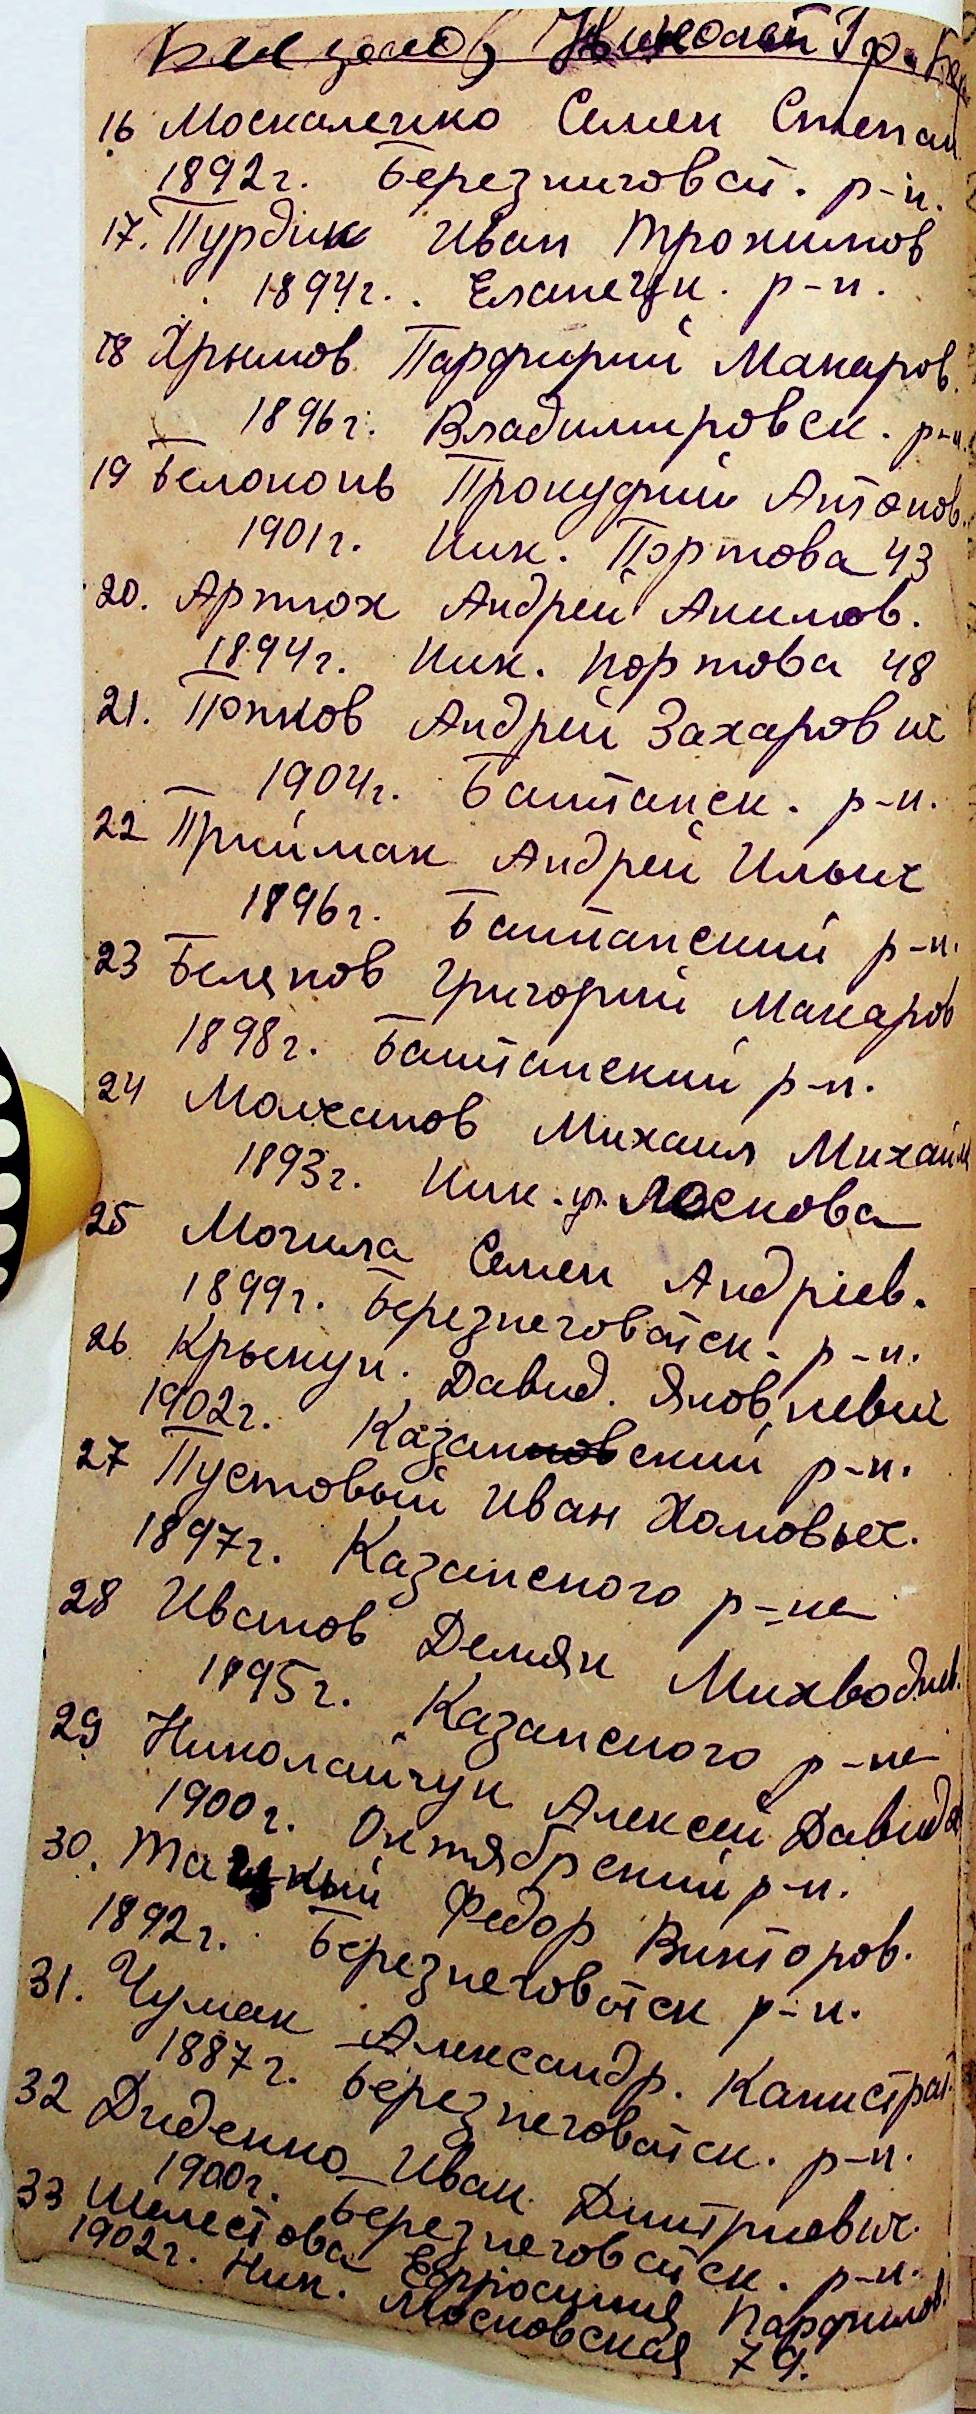 Николай Гр.
16 Москаленко Семен Степан
1892г. Березниговат. р-н.
17. Пурдик Иван Трохимов
1894г. Еланецк. р-н.
18 Хрымов Парфирий Макаров.
1896г. Владимировск. р-н.
19 Белоконь Прокуфий Антонов.
1901г. Ник. Портова 43
20. Артюх Андрей Акимов.
1894г. Ник. портова 48
21. Попков Андрей Захарович
1904г. Баштанск. р-н.
22 Приймак Андрей Ильич
1896г. Баштанский р-н.
23 Беленов Григорий Макаров
1898г. Баштанский р-н.
24 Молчанов Михаил Михайл
1893г. Ник. ул. Лоскова
25 Могила Семен Андріев.
1899г. Березнеговатск. р-н.
26 Крыкун. Давид. Яковлевич
1902г. Казанский р-н.
27 Пустовый Иван Хомовыч.
1897г. Казанского р-на
28 Иванов Демян
1895г. Казанского р-на
29 Николайчук Алексей Давидо
1900г. Октябрский р-н.
30. Тацкый Федор Викторов.
1892г. Березнеговатск р-н.
31. Чумак Александр. Канистрат.
1887г. Березнеговатск. р-н.
32 Диденко Иван Дмитриевич.
1900г. Березнеговатск. р-н.
33 Шелестова Ефросиния Парфилов.
1902г. Ник. Московская 79.